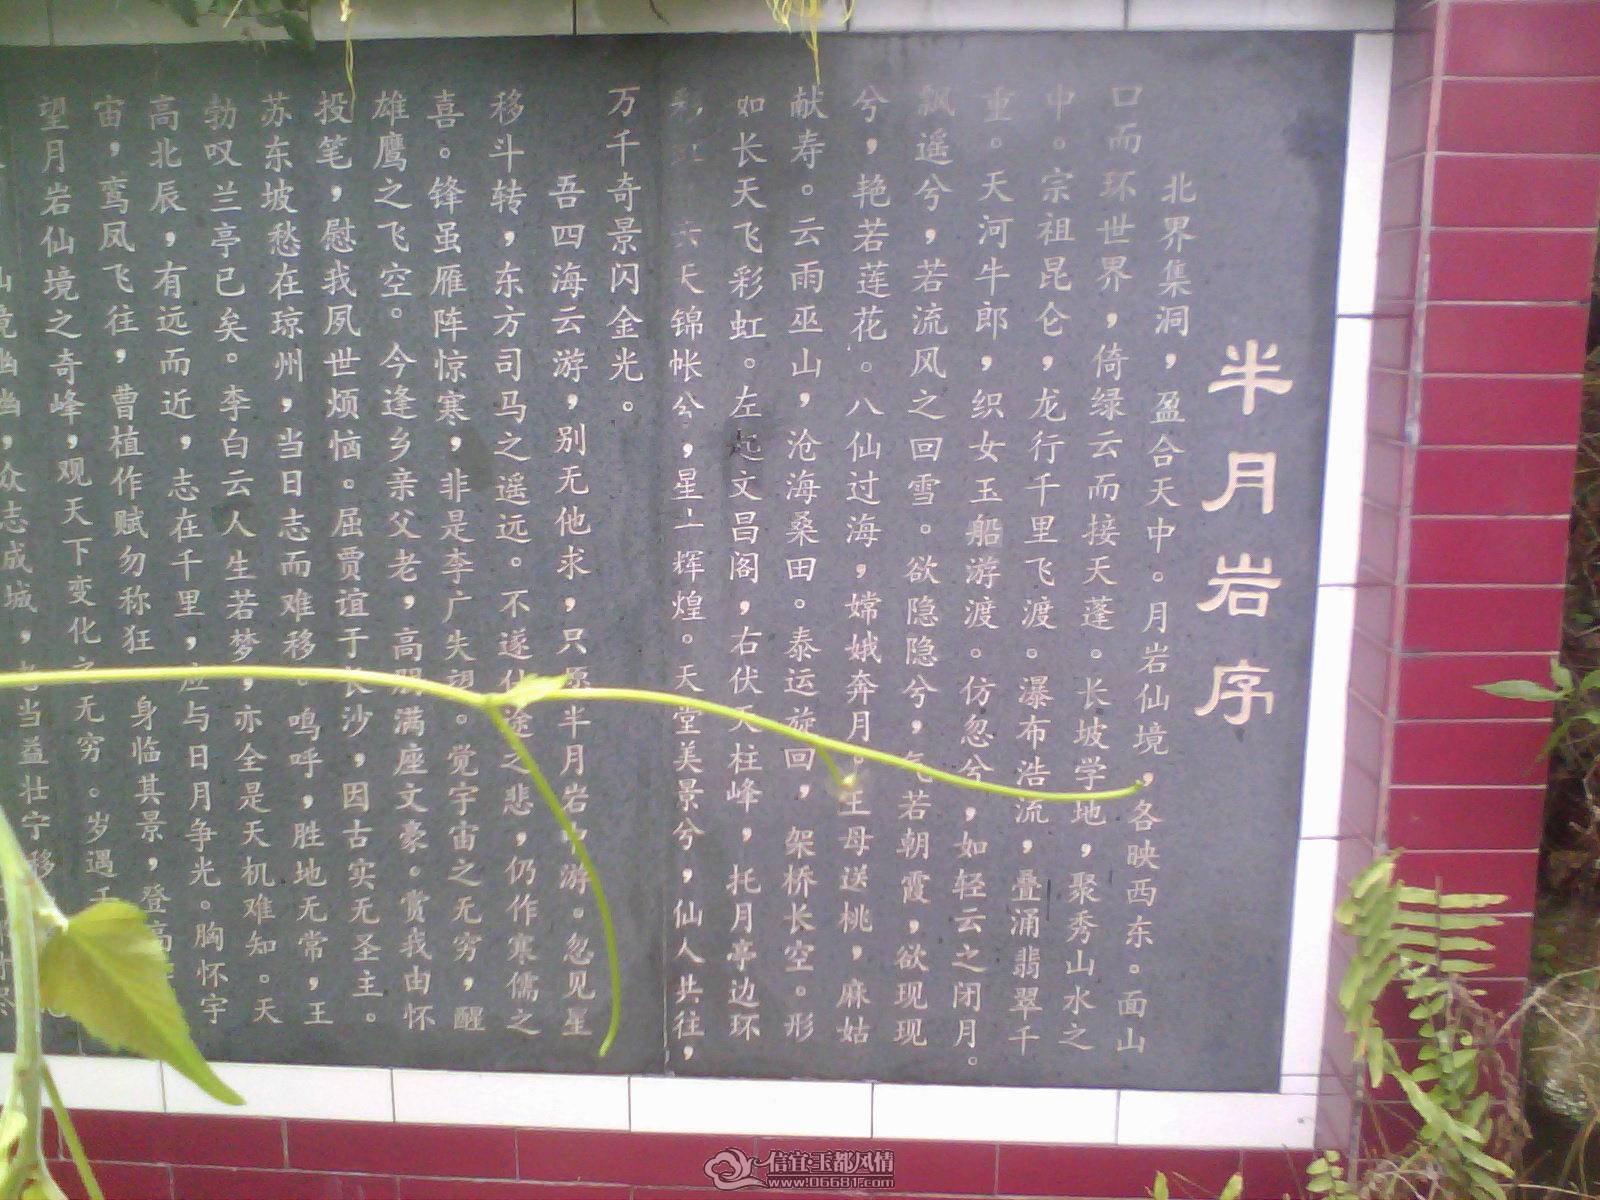 半月岩序
北界集洞，盈合天中。月岩仙境，各映西东。面山
口而环世界，倚绿云而接天蓬。长坡学地，聚秀山水之
中。宗祖昆仑，龙行千里飞渡。瀑布浩流，叠涌翡翠千
重。天河牛郎，织女玉船游渡。仿忽兮，如轻云之闭月。
飘遥兮，若流风之回雪。欲隐隐兮，气若朝霞，欲现现
兮，艳若莲花。八仙过海，嫦娥奔月。王母送桃，麻姑
献寿。云雨巫山，沧海桑田。泰运旋回，架桥长空。形
如长天飞彩虹。左起文昌阁，右伏天柱峰，托月亭边环
天锦帐兮，星斗辉煌。天堂美景兮，仙人共往，
万千奇景闪金光。
吾四海云游，别无他求，只愿半月岩中游。忽见星
移斗转，东方司马之遥远。不遂仕途之悲，仍作寒儒之
喜。锋虽雁阵惊寒，非是李广失望。觉宇宙之无穷，醒
雄鹰之飞空。今逢乡亲父老，高朋满座文豪。赏我由怀
投笔，慰我夙世烦恼。屈贾谊于长沙，因古实无圣主。
苏东坡愁在琼州，当日志而难移。鸣呼，胜地无常，王
勃叹兰亭已矣。李白云人生若梦，亦全是天机难知。天
高北辰，有远而近，志在千里，应与日月争光。胸怀宇
宙，鸾凤飞往，曹植作赋勿称狂 身临其景，登高
望月岩仙境之奇峰，观天下变化之无穷。岁遇
境幽幽，众志成城，老当益壮宁移
信宜·玉都风情
www.06681.com